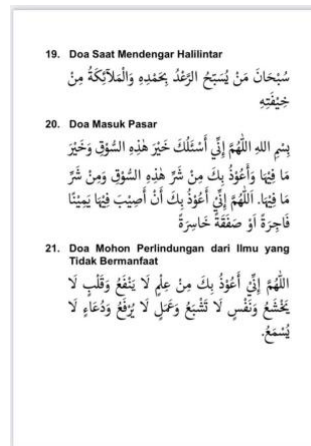 19. Doa Saat Mendengar Halilintar
سُبْحَانَ مَنْ يُسَبِّحُ الرَّعْدُ بِحَمْدِهِ وَالْمَلَآئِكَةُ مِنْ
خِيْفَتِهِ
20. Doa Masuk Pasar
بِسْمِ اللهِ اللّٰهُمَّ إِنِّي أَسْئَلُكَ خَيْرَ هٰذِهِ السُّوْقِ وَخَيْرَ
مَا فِيْهَا وَأَعُوْذُ بِكَ مِنْ شَرِّ هٰذِهِ السُّوْقِ وَمِنْ شَرِّ
مَا فِيْهَا. اَللّٰهُمَّ إِنِّيْ أَعُوْذُ بِكَ أَنْ أُصِيْبَ فِيْهَا يَمِيْنًا
فَاجِرَةً اَوْ صَفَقَةً خَاسِرَةً
21. Doa Mohon Perlindungan dari Ilmu yang
Tidak Bermanfaat
اللّٰهُمَّ إِنِّيْ أَعُوْذُ بِكَ مِنْ عِلْمٍ لَا يَنْفَعُ وَقَلْبٍ لَا
يَخْشَعُ وَنَفْسٍ لَا تَشْبَعُ وَعَمَلٍ لَا يُرْفَعُ وَدُعَاءٍ لَا
يُسْمَعُ.